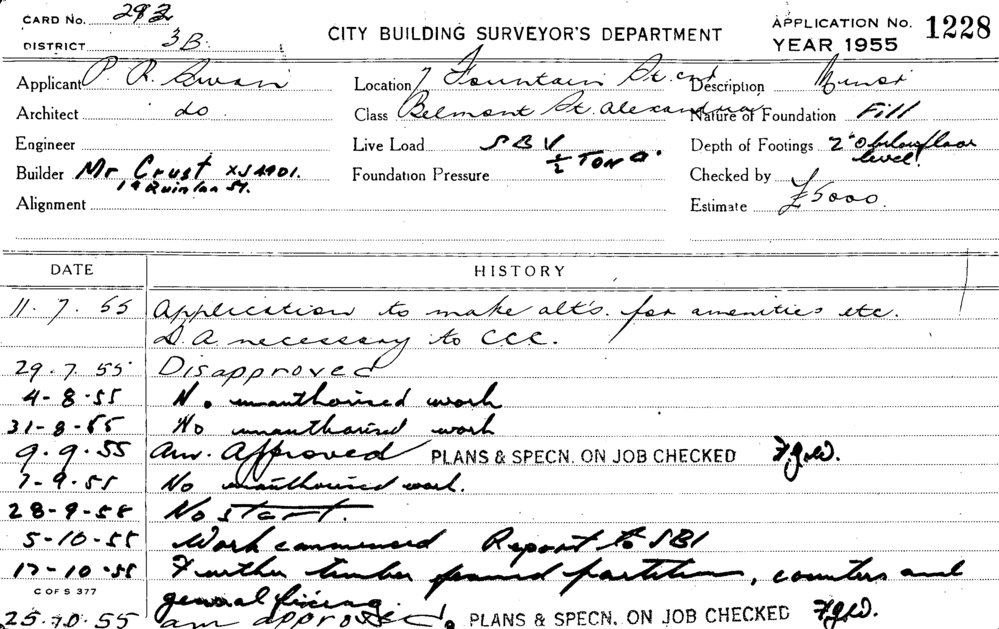 CARD No. 292
DISTRICT 3B.
CITY BUILDING SURVEYOR'S DEPARTMENT
APPLICATION No. 1228
YEAR 1955
Applicant P. R. Swain Location 7 Fountain St. cnr Description Minor
Architect do Class Belmont St. Alexandria Nature of Foundation Fill
Engineer Live Load SBV Depth of Footings 2'0 below floor level.
Builder Mr Crust XJ4901. Foundation Pressure ½ TON □' Checked by
19 Quinlan St.
Alignment Estimate £5000.
DATE HISTORY
11.7.55 Application to make alt's. for amenities etc.
D.A. necessary to CCC.
29.7.55 Disapproved
4-8-55 No unauthorised work
31-8-55 No unauthorised work
9.9.55 Am. Approved PLANS & SPECN. ON JOB CHECKED
7-9-55 No unauthorised work.
28-9-55 No start.
5-10-55 Work commenced Report to SBI
17-10-55 Further timber framed partitions, counters and
C OF S 377 general fixing.
25.10.55 am approved. PLANS & SPECN. ON JOB CHECKED